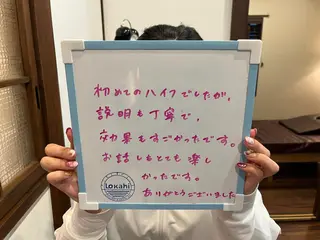 初めてのハイフでしたが、
説明も丁寧で、
効果もすごかったです。
お話しもとても楽し
かったです。
ありがとうございました
Lokahi